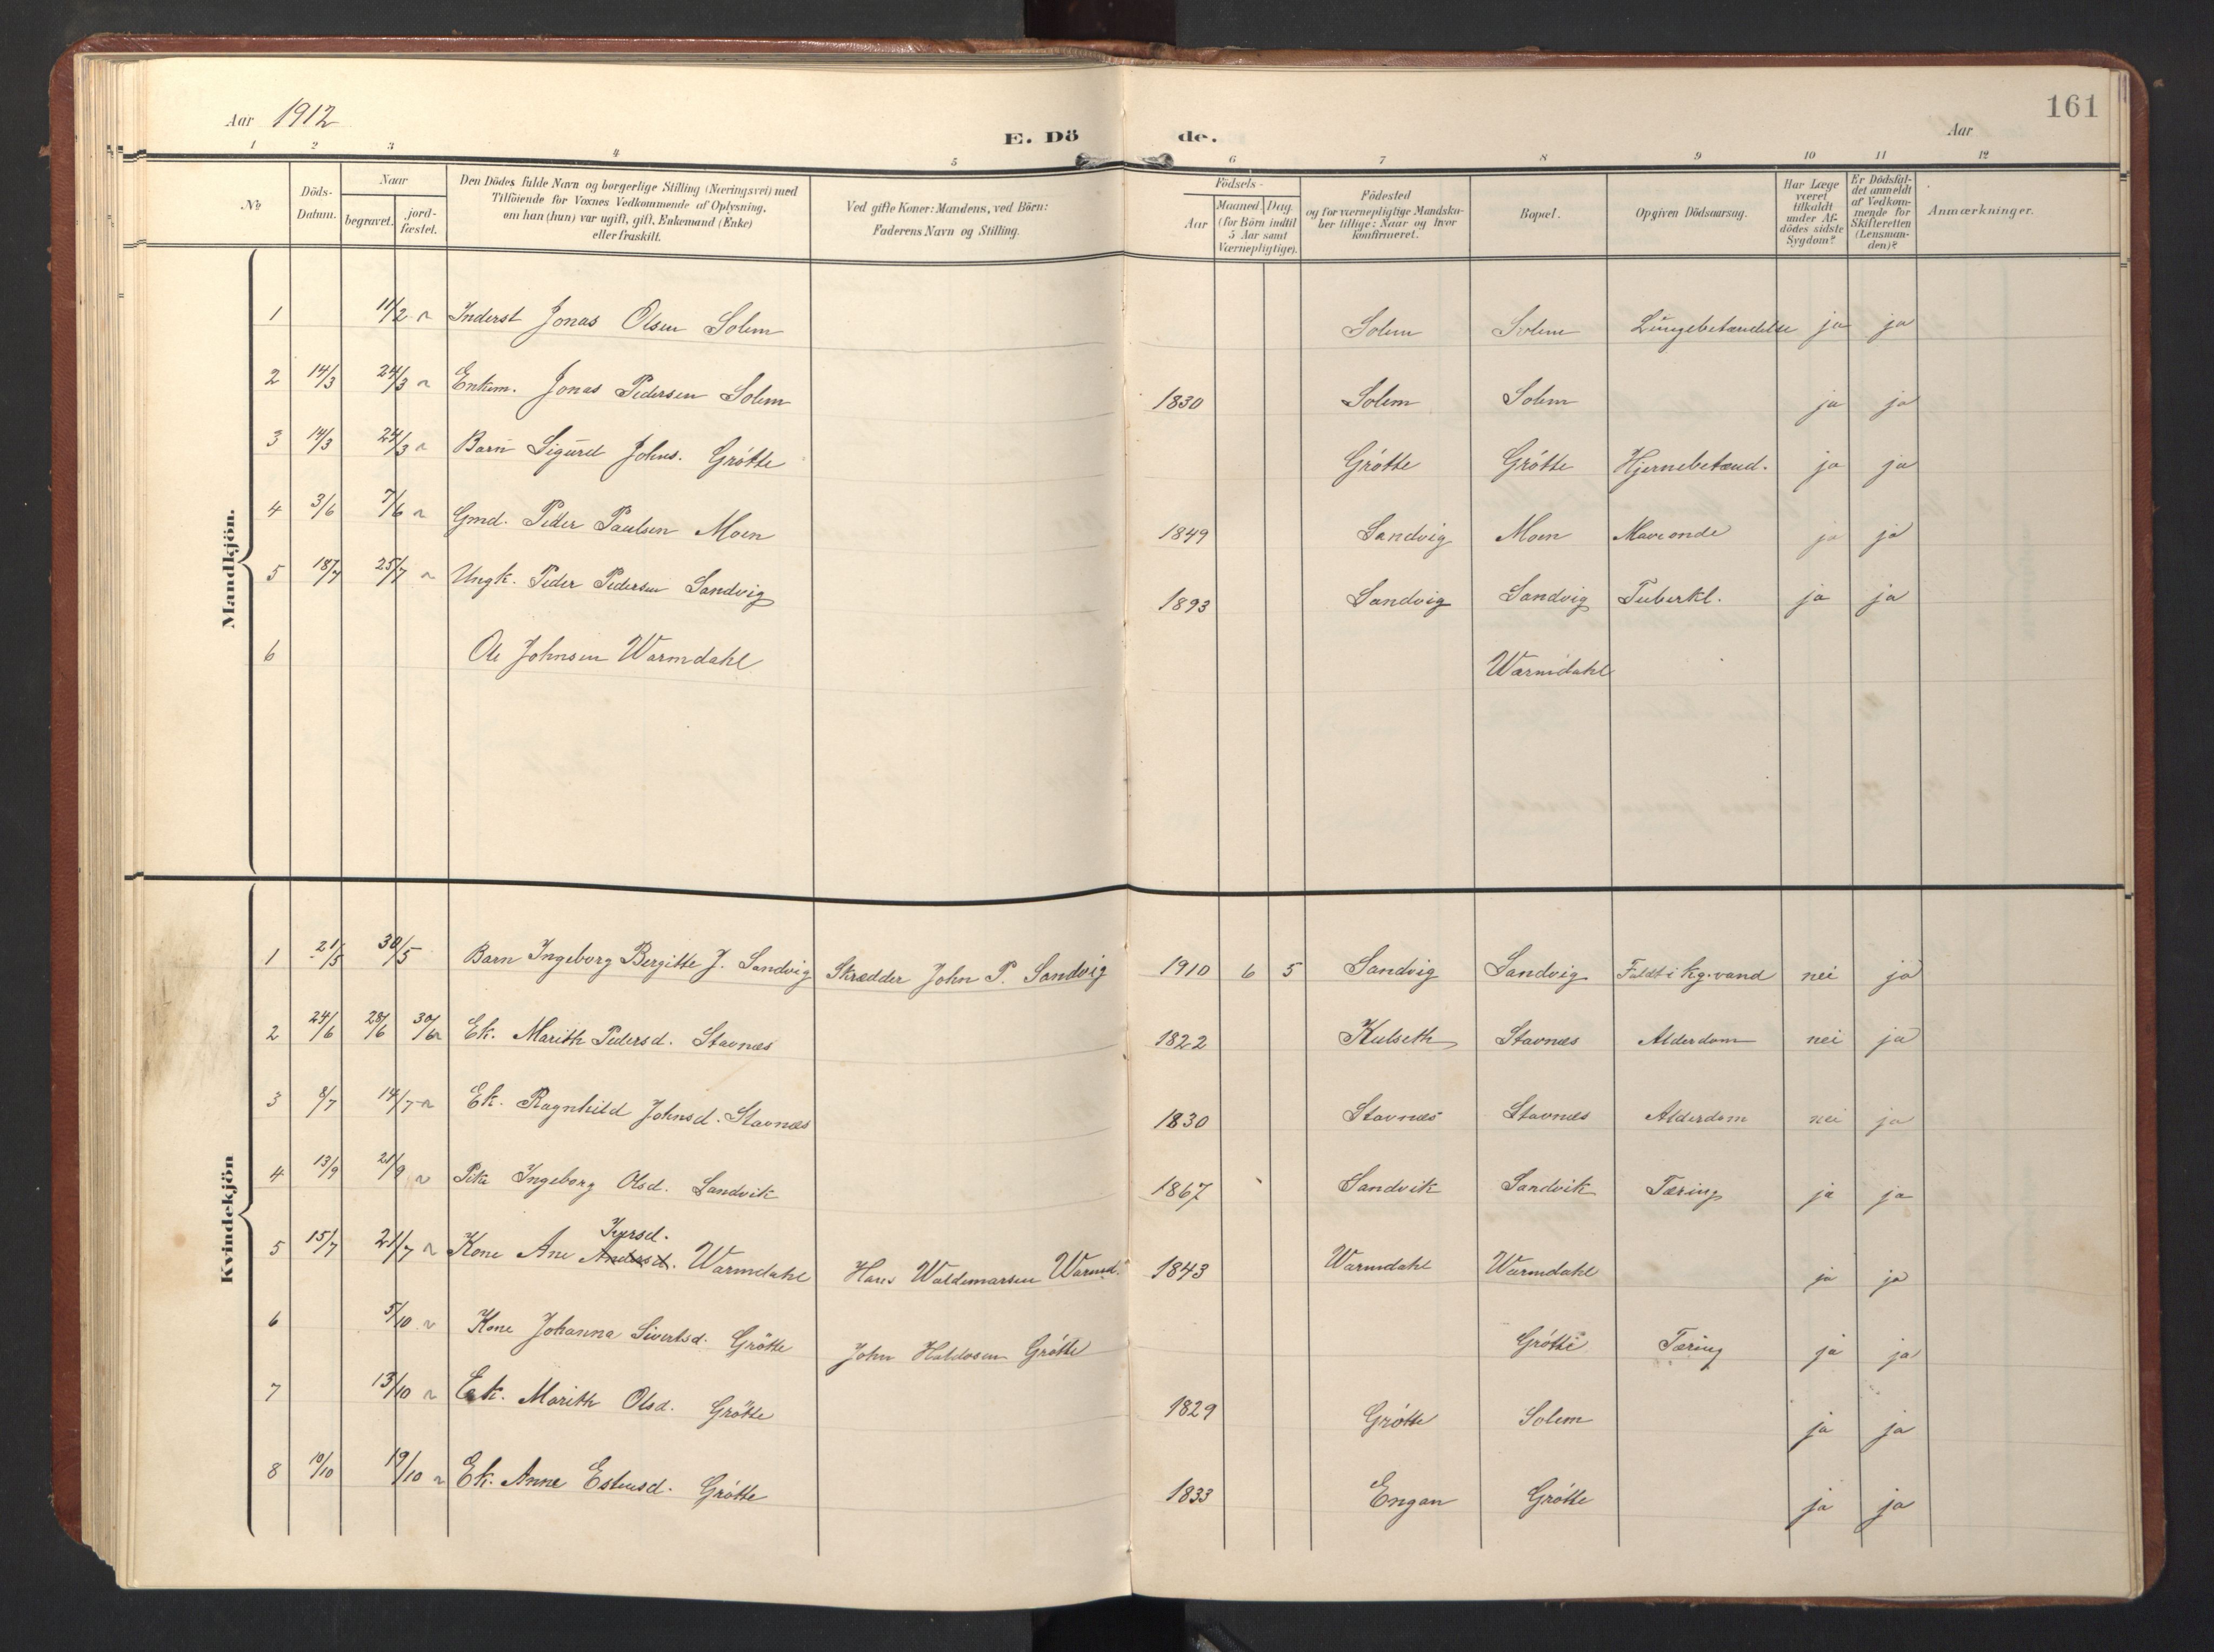 Aar 1912
E. Dö de.
Aar
161
1 2 3 4 5 6 7 8 9 10 11 12
№
Döds-
Datum.
Naar
begravet.
jord-
fæstet.
Den Dödes fulde Navn og borgerlige Stilling (Næringsvei) med
Tilföiende for Voxnes Vedkommende af Oplysning,
om han (hun) var ugift, gift, Enkemand (Enke)
eller fraskilt.
Ved gifte Koner: Mandens, ved Börn:
Faderens Navn og Stilling.
Födsels-
Aar
Maaned
Dag
(for Börn indtil
5 Aar samt
Værnepligtige).
Födested
og for værnepligtige Mandska-
ber tillige: Naar og hvor
konfirmeret.
Bopæl.
Opgiven Dödsaarsag.
Har Læge
været
tilkaldt
under Af-
dödes sidste
Sygdom?
Er Dödsfal-
det anmeldt
af Vedkom-
mende for
Skifteretten
(Lensman-
den)?
Anmærkninger.
Mandkjön.
1 11/2 Inderst Jonas Olsen Solem Solem Solem Lungebetændelse ja ja
2 14/3 24/3 Enkem. Jonas Pedersen Solem 1830 Solem Solem ja ja
3 14/3 24/3 Barn Sigurd Johns. Grötte Grötte Grötte Hjernebetænd. ja ja
4 3/6 7/6 Gmd. Peder Paulsen Moen 1849 Sandvig Moen Maveonde ja ja
5 18/7 25/7 Ungk. Peder Pedersen Sandvig 1893 Sandvig Sandvig Tuberkl. ja ja
6 Ole Johnsen Warmdahl Warmdahl
Kvindekjön
1 21/5 30/5 Barn Ingeborg Bergitte J. Sandvig Skrædder John P. Sandvig 1910 6 5 Sandvig Sandvig Faldt i kg. vand nei ja
2 24/6 28/6 30/6 Ek. Marith Pedersd. Stavnes 1822 Kulseth Stavnæs Alderdom nei ja
3 8/7 14/7 Ek. Ragnhild Johnsd. Stavnæs 1830 Stavnæs Stavnæs Alderdom nei ja
4 13/9 21/9 Pike Ingeborg Olsd. Sandvik 1867 Sandvik Sandvik Tæring ja ja
Iversd.
5 15/7 21/7 Kone Ane Andersd. Warmdahl Hans Waldemarsen Warmd. 1843 Warmdahl Warmdahl ja ja
6 5/10 Kone Johanna Sivertsd. Grötte John Haldosen Grötte Grötte Tæring ja ja
7 13/10 Ek. Marith Olsd. Grötte 1829 Grötte Solem ja ja
8 10/10 19/10 Ek. Anne Estensd. Grötte 1833 Engan Grötte ja ja